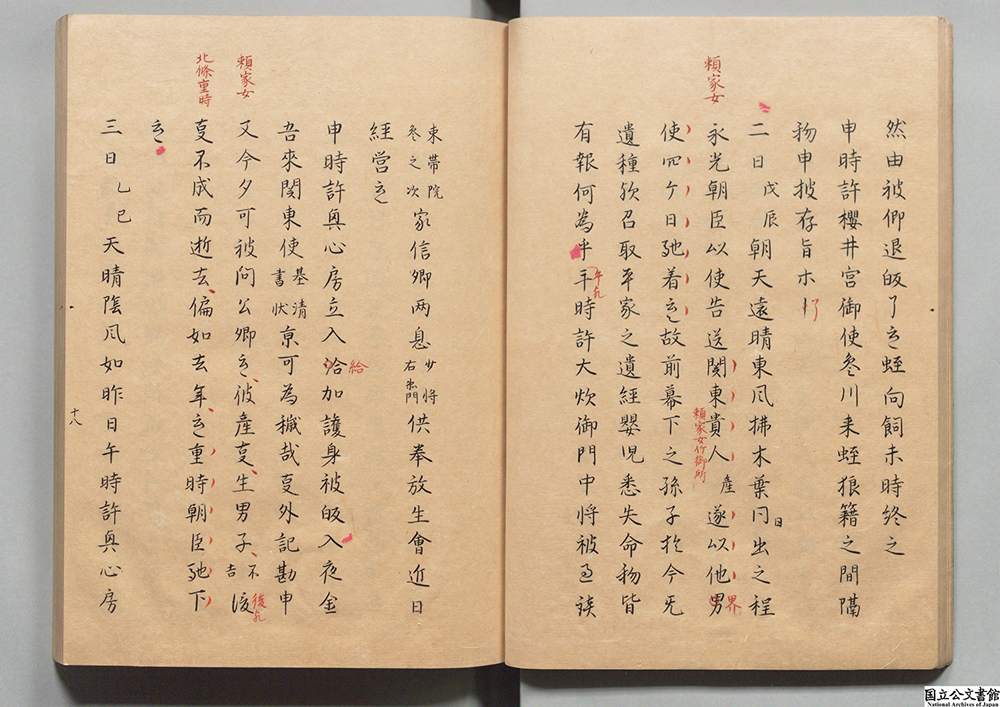 然由被仰退皈了云蛭向飼未時終之
申時許櫻井宮御使参川来蛭狼籍之間隔
物申披存旨ホ了
二日戊辰朝天遠晴東風拂木葉同日出之程
頼家女
永光朝臣以使告送関東貴人産遂以他男界
頼家女竹御所
使四ケ日馳着云故前幕下之孫子於今无
遺種欤召取平家之遺経嬰児悉失命物皆
有報何為乎午時許大炊御門中将被過談
午凢
東帯院参之次家信卿両息少将右衛門供奉放生會近日
経営云
申時許真心房立入洽給加護身被皈入夜金
吾來関東使基清書状京可為穢哉夏外記勘申
頼家女
又今夕可被問公卿云彼産夏生男子不吉後
後凢
北條重時
夏不成而逝去偏如去年云重時朝臣馳下
云
三日乙巳天晴陰風如昨日午時許真心房
十八
国立公文書館
National Archives of Japan